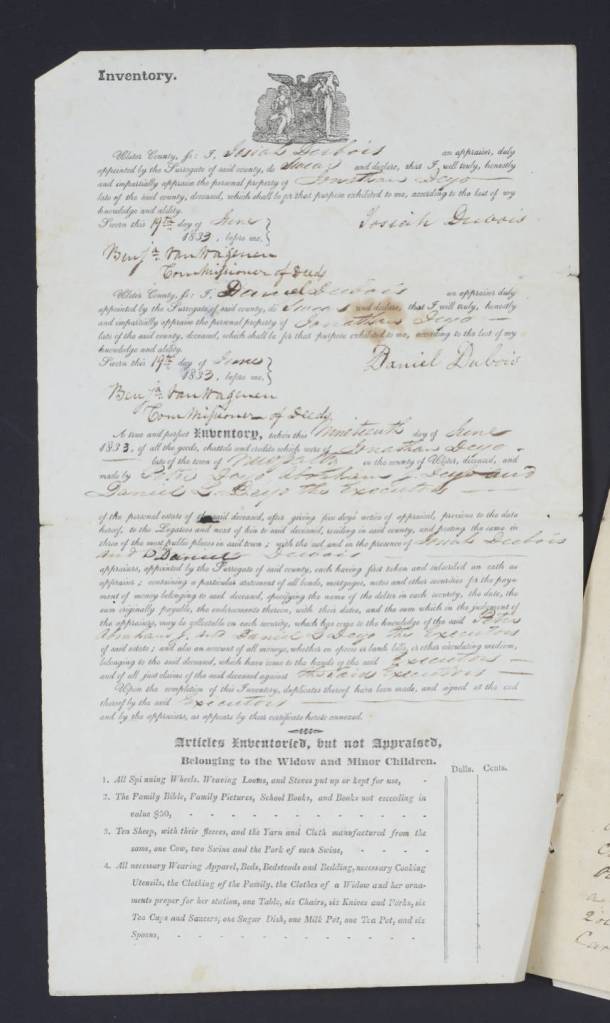 Inventory.
Ulster County, ss: I, Josiah Dubois an appraiser, duly
appointed by the Surrogate of said county, do Swear and declare, that I will truly, honestly
and impartially appraise the personal property of Jonathan Deyo
late of the said county, deceased, which shall be for that purpose exhibited to me, according to the best of my
knowledge and ability.
Sworn this 19th day of June
1833, before me,
Josiah Dubois
Benjn. Van Wagenen
Commissioner of Deeds
Ulster County, ss: I, Daniel Dubois an appraiser duly
appointed by the Surrogate of said county, do Swear and declare, that I will truly, honestly
and impartially appraise the personal property of Jonathan Deyo
late of the said county, deceased, which shall be for that purpose exhibited to me, according to the best of my
knowledge and ability.
Sworn this 19th day of June
1833, before me,
Daniel Dubois
Benjn. Van Wagenen
Commissioner of Deeds
A true and perfect Inventory, taken this Nineteenth day of June
1833, of all the goods, chattels and credits which were of Jonathan Deyo
late of the town of in the county of Ulster, deceased, and
made by Peter Deyo Abraham J. Deyo and
Daniel L. Deyo the Executors
of the personal estate of the said deceased, after giving five days notice of appraisal, previous to the date
hereof, to the Legatees and next of kin to said deceased, residing in said county, and posting the same in
three of the most public places in said town; with the aid and in the presence of Josiah Dubois
and Daniel Dubois
appraisers, appointed by the Surrogate of said county, each having first taken and subscribed an oath as
appraiser; containing a particular statement of all bonds, mortgages, notes and other securities for the payment
ment of money belonging to said deceased, specifying the name of the debtor in each security, the date, the
sum originally payable, the endorsements thereon, with their dates, and the sum which in the judgment of
the appraisers, may be collectable on each security, which has come to the knowledge of the said Peter
Abraham J. and Daniel L. Deyo the Executors
of said estate; and also an account of all moneys, whether in specie or bank bills, or other circulating medium,
belonging to the said deceased, which have come to the hands of the said Executors
and of all just claims of the said deceased against the said Executors
Upon the completion of this Inventory, duplicates thereof have been made, and signed at the end
thereof by the said Executors
and by the appraisers, as appears by their certificate hereto annexed.
Articles Inventoried, but not Appraised,
Belonging to the Widow and Minor Children.
Dolls. Cents.
1. All Spinning Wheels, Weaving Looms, and Stoves put up or kept for use, -
2. The Family Bible, Family Pictures, School Books, and Books not exceeding in
value $50, - - - - - - - - - -
3. Ten Sheep, with their fleeces, and the Yarn and Cloth manufactured from the
same, one Cow, two Swine and the Pork of such Swine, - - - -
4. All necessary Wearing Apparel, Beds, Bedsteads and Bedding, necessary Cooking
Utensils, the Clothing of the Family, the Clothes of a Widow and her orna-
ments proper for her station, one Table, six Chairs, six Knives and Forks, six
Tea Cups and Saucers, one Sugar Dish, one Milk Pot, one Tea Pot, and six
Spoons, - - - - - - - - - -